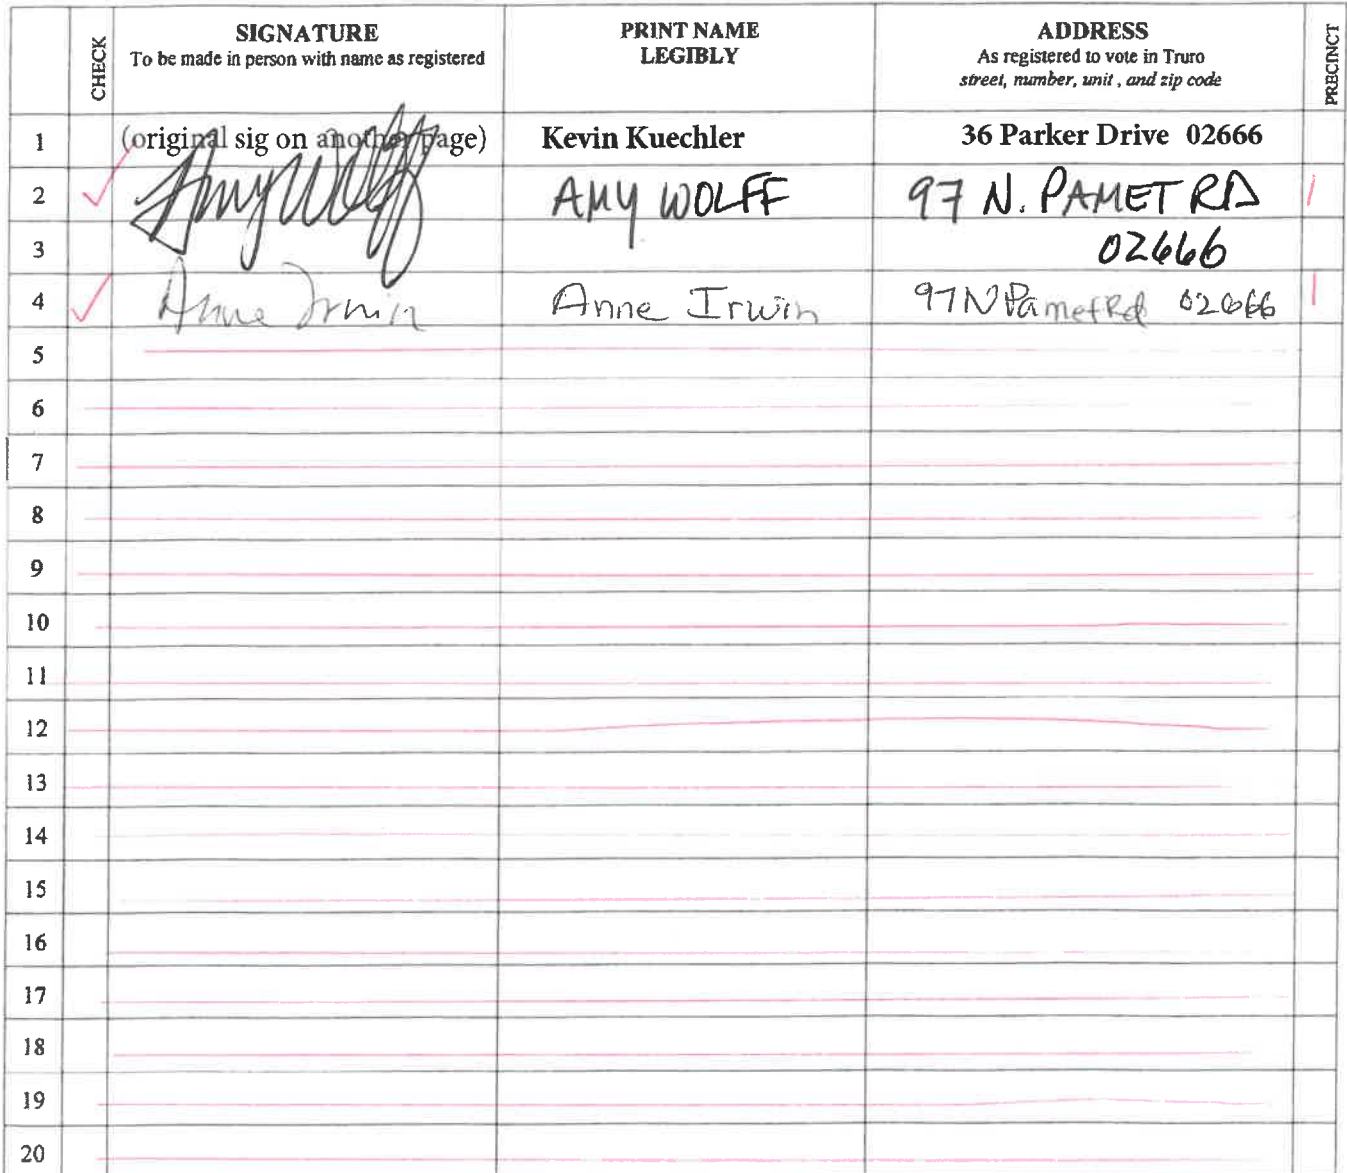 CHECK
SIGNATURE
To be made in person with name as registered
PRINT NAME
LEGIBLY
ADDRESS
As registered to vote in Truro
street, number, unit, and zip code
PRECINCT
1 (original sig on another page) Kevin Kuechler 36 Parker Drive 02666
2 ✓ Amy Wolff AMY WOLFF 97 N. PAMET RD 1
3 02666
4 ✓ Anne Irwin Anne Irwin 97 N Pamet Rd 02666 1
5
6
7
8
9
10
11
12
13
14
15
16
17
18
19
20